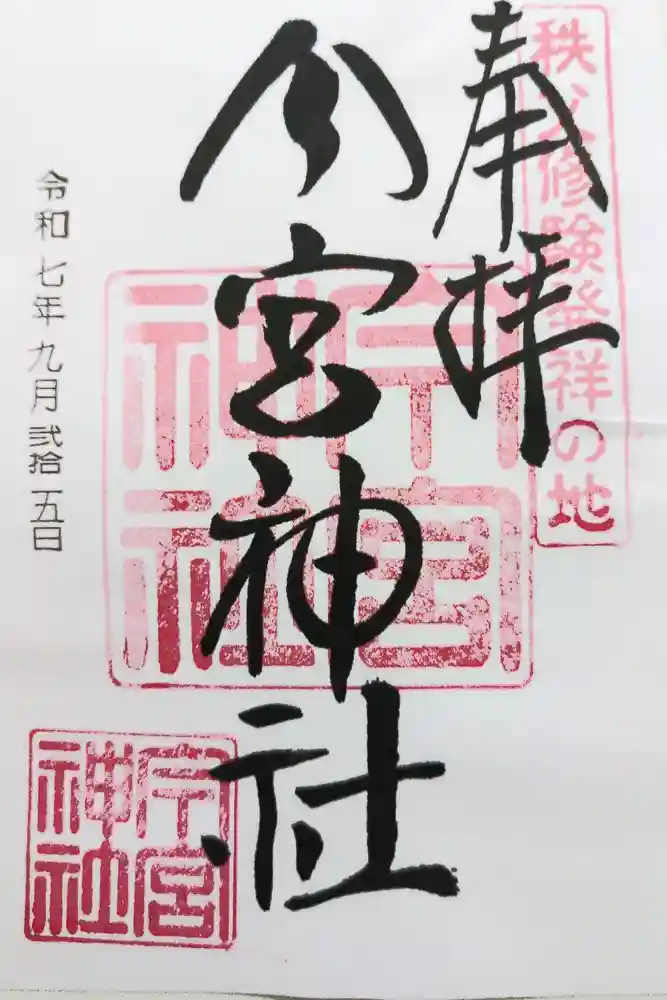 秩父修験発祥の地
奉拝
今宮神社
今宮神社
令和七年九月弐拾五日
今宮神社